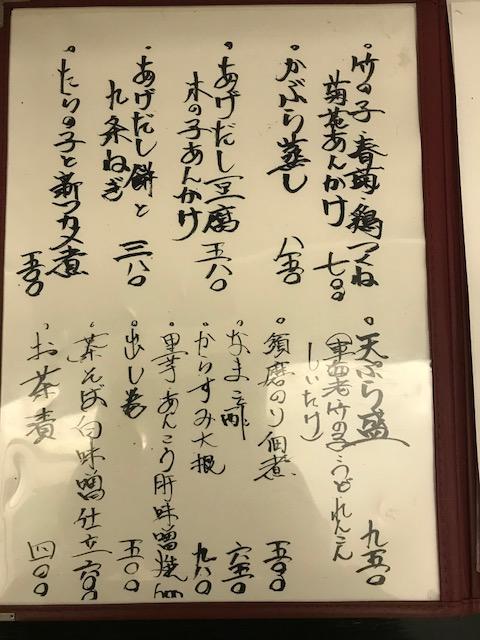 ・竹の子・春菊・鶏つくね
菊花あんかけ 七〇〇
・かぶら蒸し 八五〇
・あげだし豆腐
木の子あんかけ 五八〇
・あげだし餅と
九条ねぎ 三八〇
・たらの子と新ワカメ煮
五五〇
・天ぷら盛 九五〇
(車海老竹の子うどれんこん
しいたけ)
・須磨のり佃煮 五〇〇
・なまこ酢 六五〇
・からすみ大根 九八〇
・里芋・あんこう肝味噌焼
・出し巻 五〇〇
・茶そば白味噌仕立 六〇〇
・お茶漬 四〇〇